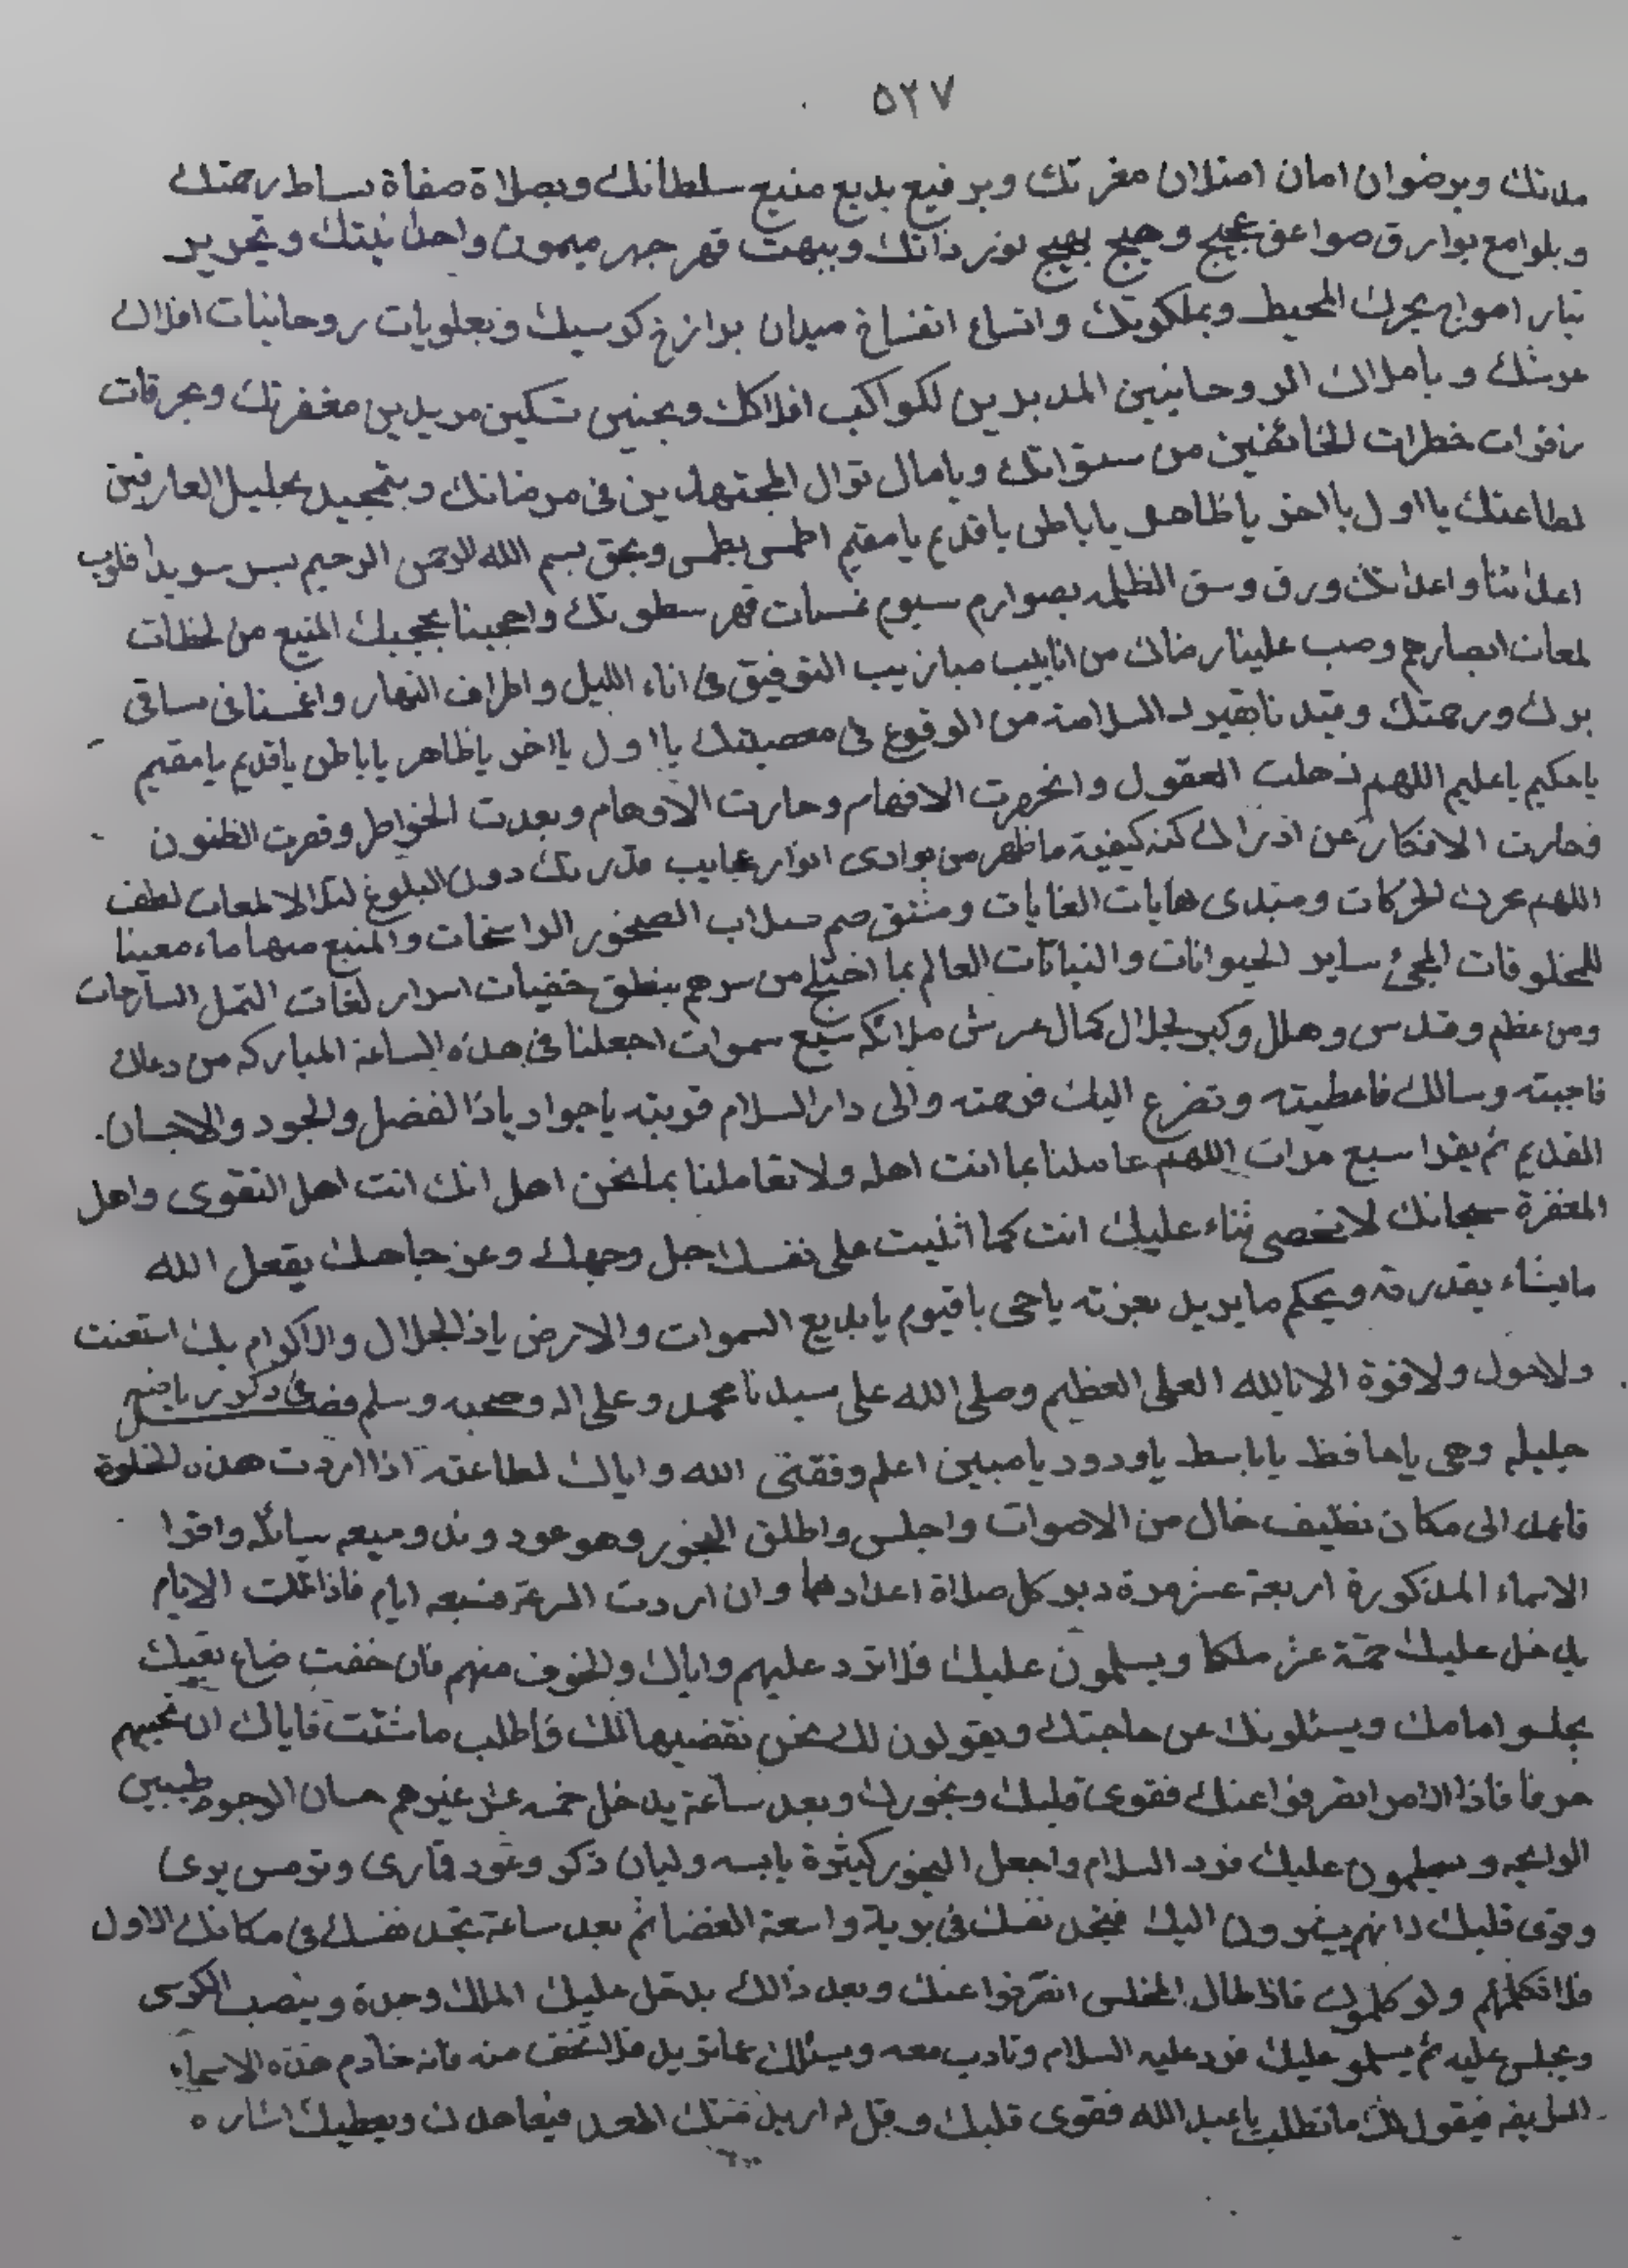 ٥٢٧
وبرضوان امان امتلان مغرتك وبرفيع بديع منيع سلطانك وبصلاة صفاة بساط رحمتك
وبلوامع بوارق صواعق عجيج وهيج بهيج نور ذاتك وببهت قهر جهر ميمون واحدانيتك
تيار امواج بحرك المحيط وبملكوتك واتساع انفساخ ميدان برازخ كوسيك وبعلويات روحانيات افلاك
عرشك وباملاك الروحانيين المدبرين لكواكب افلاكك وبحنين تسكين مريدين مغفرتك وبحرقات
زفرات خطرات الخائفين من سطواتك وبامال نوال المجتهدين في مرضاتك وبتمجيد تجليل العارفين
لطاعتك يا اول يا اخر يا ظاهر يا باطن يا قديم يا مقيم اطمس بطمس وبحق بسم الله الرحمن الرحيم بسر سويدا قلوب
اعدائنا واعدائك ورق وسق الظلمه بصوارم سيوم غسات قهر سطوتك واحجبنا بحجبك المنيع من لحظات
لمعات ابصارهم وصب علينا رضاك من انابيب ميازيب التوفيق في اناء الليل واطراف النهار واغمسنا في ساقى
برك ورحمتك وقيدنا بقيود السلامة من الوقوع في معصيتك يا اول يا اخر يا ظاهر يا باطن يا قديم يا مقيم
يا حكيم يا عليم اللهم ذهلت العقول وانحرت الافهام وحارت الاوهام وبعدت الخواطر وقصرت الظنون
فحارت الافكار عن ادراك كنه كيفية ما ظهر من بوادى انوار عجايب قدرتك دون البلوغ لتلالا لمعات لطف
اللهم محرك الحركات ومبتدى هايات الغايات ومشقق صم صلاب الصخور الراسخات والمنبع منها ماء معينا
للمخلوقات المجئ ساير الحيوانات والنباتات العالم بما اختلج من سرهم بنطق خفيات اسرار لغات النمل السارحات
ومن عظم وقدس وهلل وكبر لجلال كمال عرش ملائكة سبع سموات اجعلنا في هذه الساعة المباركه من دعاك
فاجبته وسالك فاعطيته وتضرع اليك فرحمته والى دار السلام قربته يا جواد يا ذا الفضل والجود والاحسان
القديم ثم يقرا سبع مرات اللهم عاملنا بما انت اهله ولا تعاملنا بما نحن اهل انك انت اهل التقوى واهل
المغفرة سبحانك لا نحصى ثناء عليك انت كما اثنيت على نفسك جل وجهك وعز جاهك يفعل الله
ما يشاء بقدرته ويحكم ما يريد بعزته ياحى يا قيوم يا بديع السموات والارض يا ذا الجلال والاكرام بك استعنت
ولا حول ولا قوة الا بالله العلى العظيم وصلى الله على سيدنا محمد وعلى اله وصحبه وسلم فصل في ذكر رياضه
جليله وهى يا حافظ يا باسط يا ودود يا مبين اعلم وفقنى الله واياك لطاعته اذا اردت هذه الخلوة
فاعمد الى مكان نظيف خال من الاصوات واجلس واطلق البخور وهو عود وند وميعه سائله واقرا
الاسماء المذكورة اربعة عشر مرة دبر كل صلاة اعدادها وان اردت السرعة فسبعه ايام فاذا تمت الايام
يدخل عليك خمسة عشر ملكا ويسلمون عليك فلا ترد عليهم واياك والخوف منهم فان خفت ضاع تعبك
يجلسو امامك ويسئلونك عن حاجتك ويقولون لك نحن نقضيها لك فاطلب ما شئت فاياك ان تجيبهم
حرفا فاذا الامر انصرفوا عنك فقوى قلبك وبخورك وبعد ساعة يدخل خمسه عشر غيرهم حسان الوجوه طيبين
الرايحه ويسلمون عليك فرد السلام واجعل البخور كثيرة يابسه ولبان ذكر وعود قمارى وترمس برى
وقوى قلبك ينظرون اليك فتجد نفسك في برية واسعة الفضا ثم بعد ساعة تجد نفسك في مكانك الاول
فلا تكلمهم ولو كلموك فاذا طال المجلس انصرفوا عنك وبعد ذالك يدخل عليك الملك وحده وينصب الكرسى
ويجلس عليه ثم يسلم عليك فرد عليه السلام وتادب معه ويسئلك عما تريد فلا تخف منه فانه خادم هذه الاسماء
الشريفه فيقول لك ما تطلب يا عبد الله فقوى قلبك وقل له اريد منك العهد فيعاهدك ويعطيك اشاره